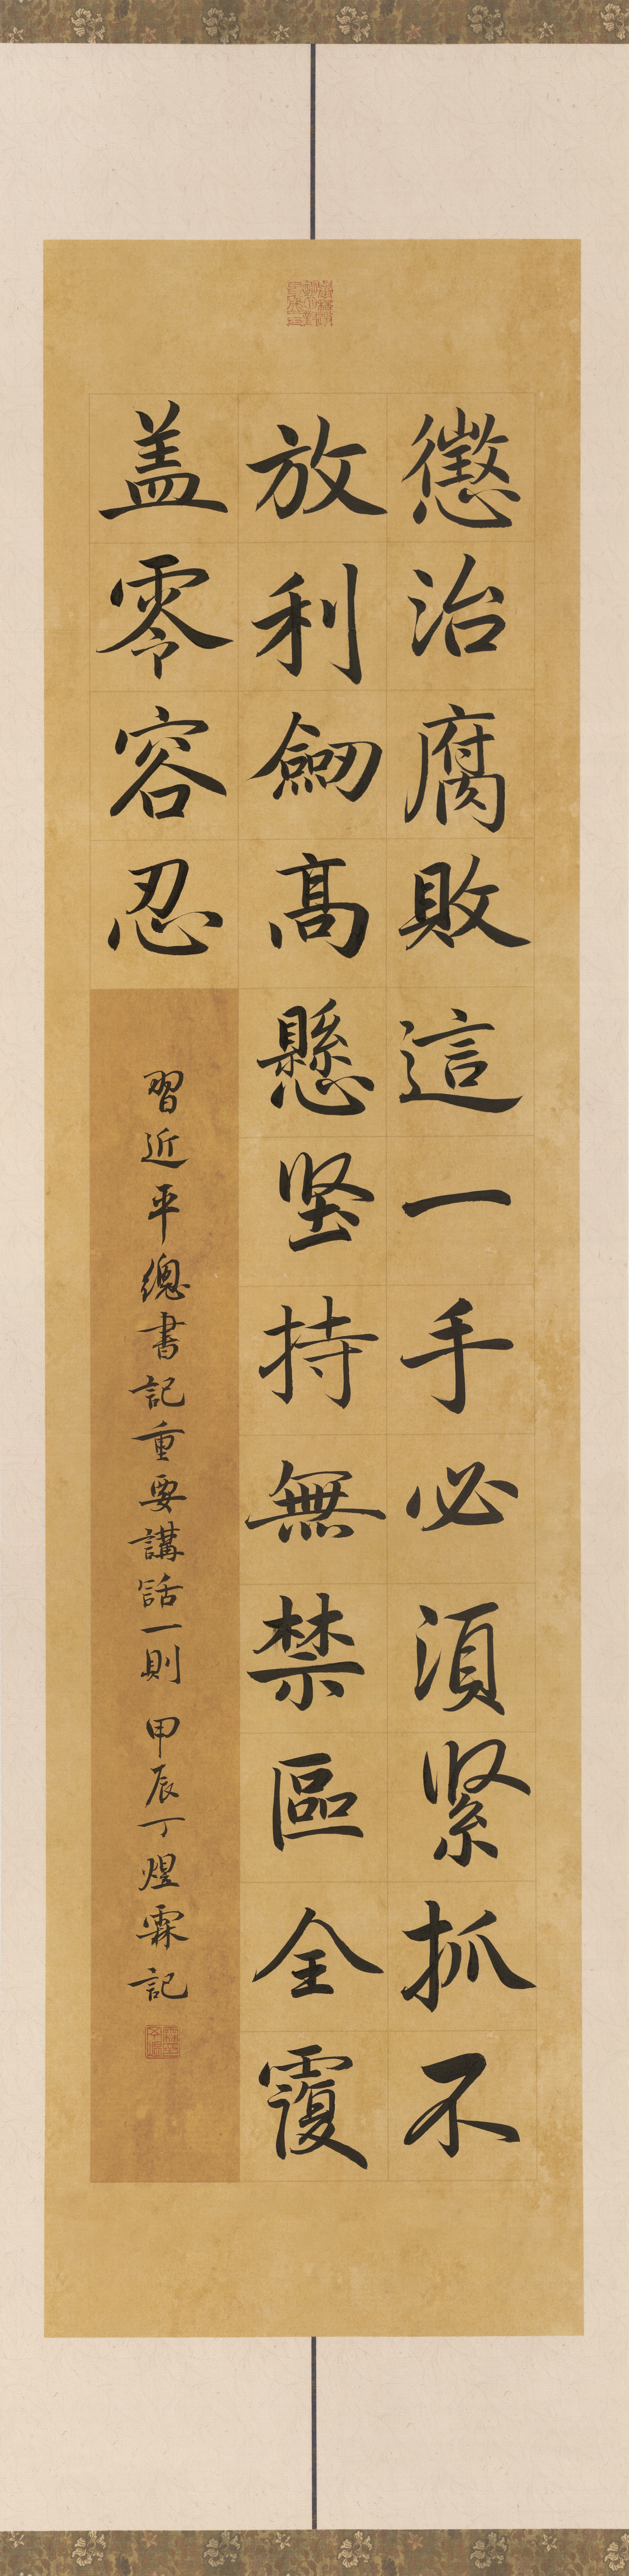 懲治腐敗這一手必須緊抓不
放利劒髙懸坚持無禁區全覆
盖零容忍
習近平總書記重要講話一則 甲辰丁煜霖記